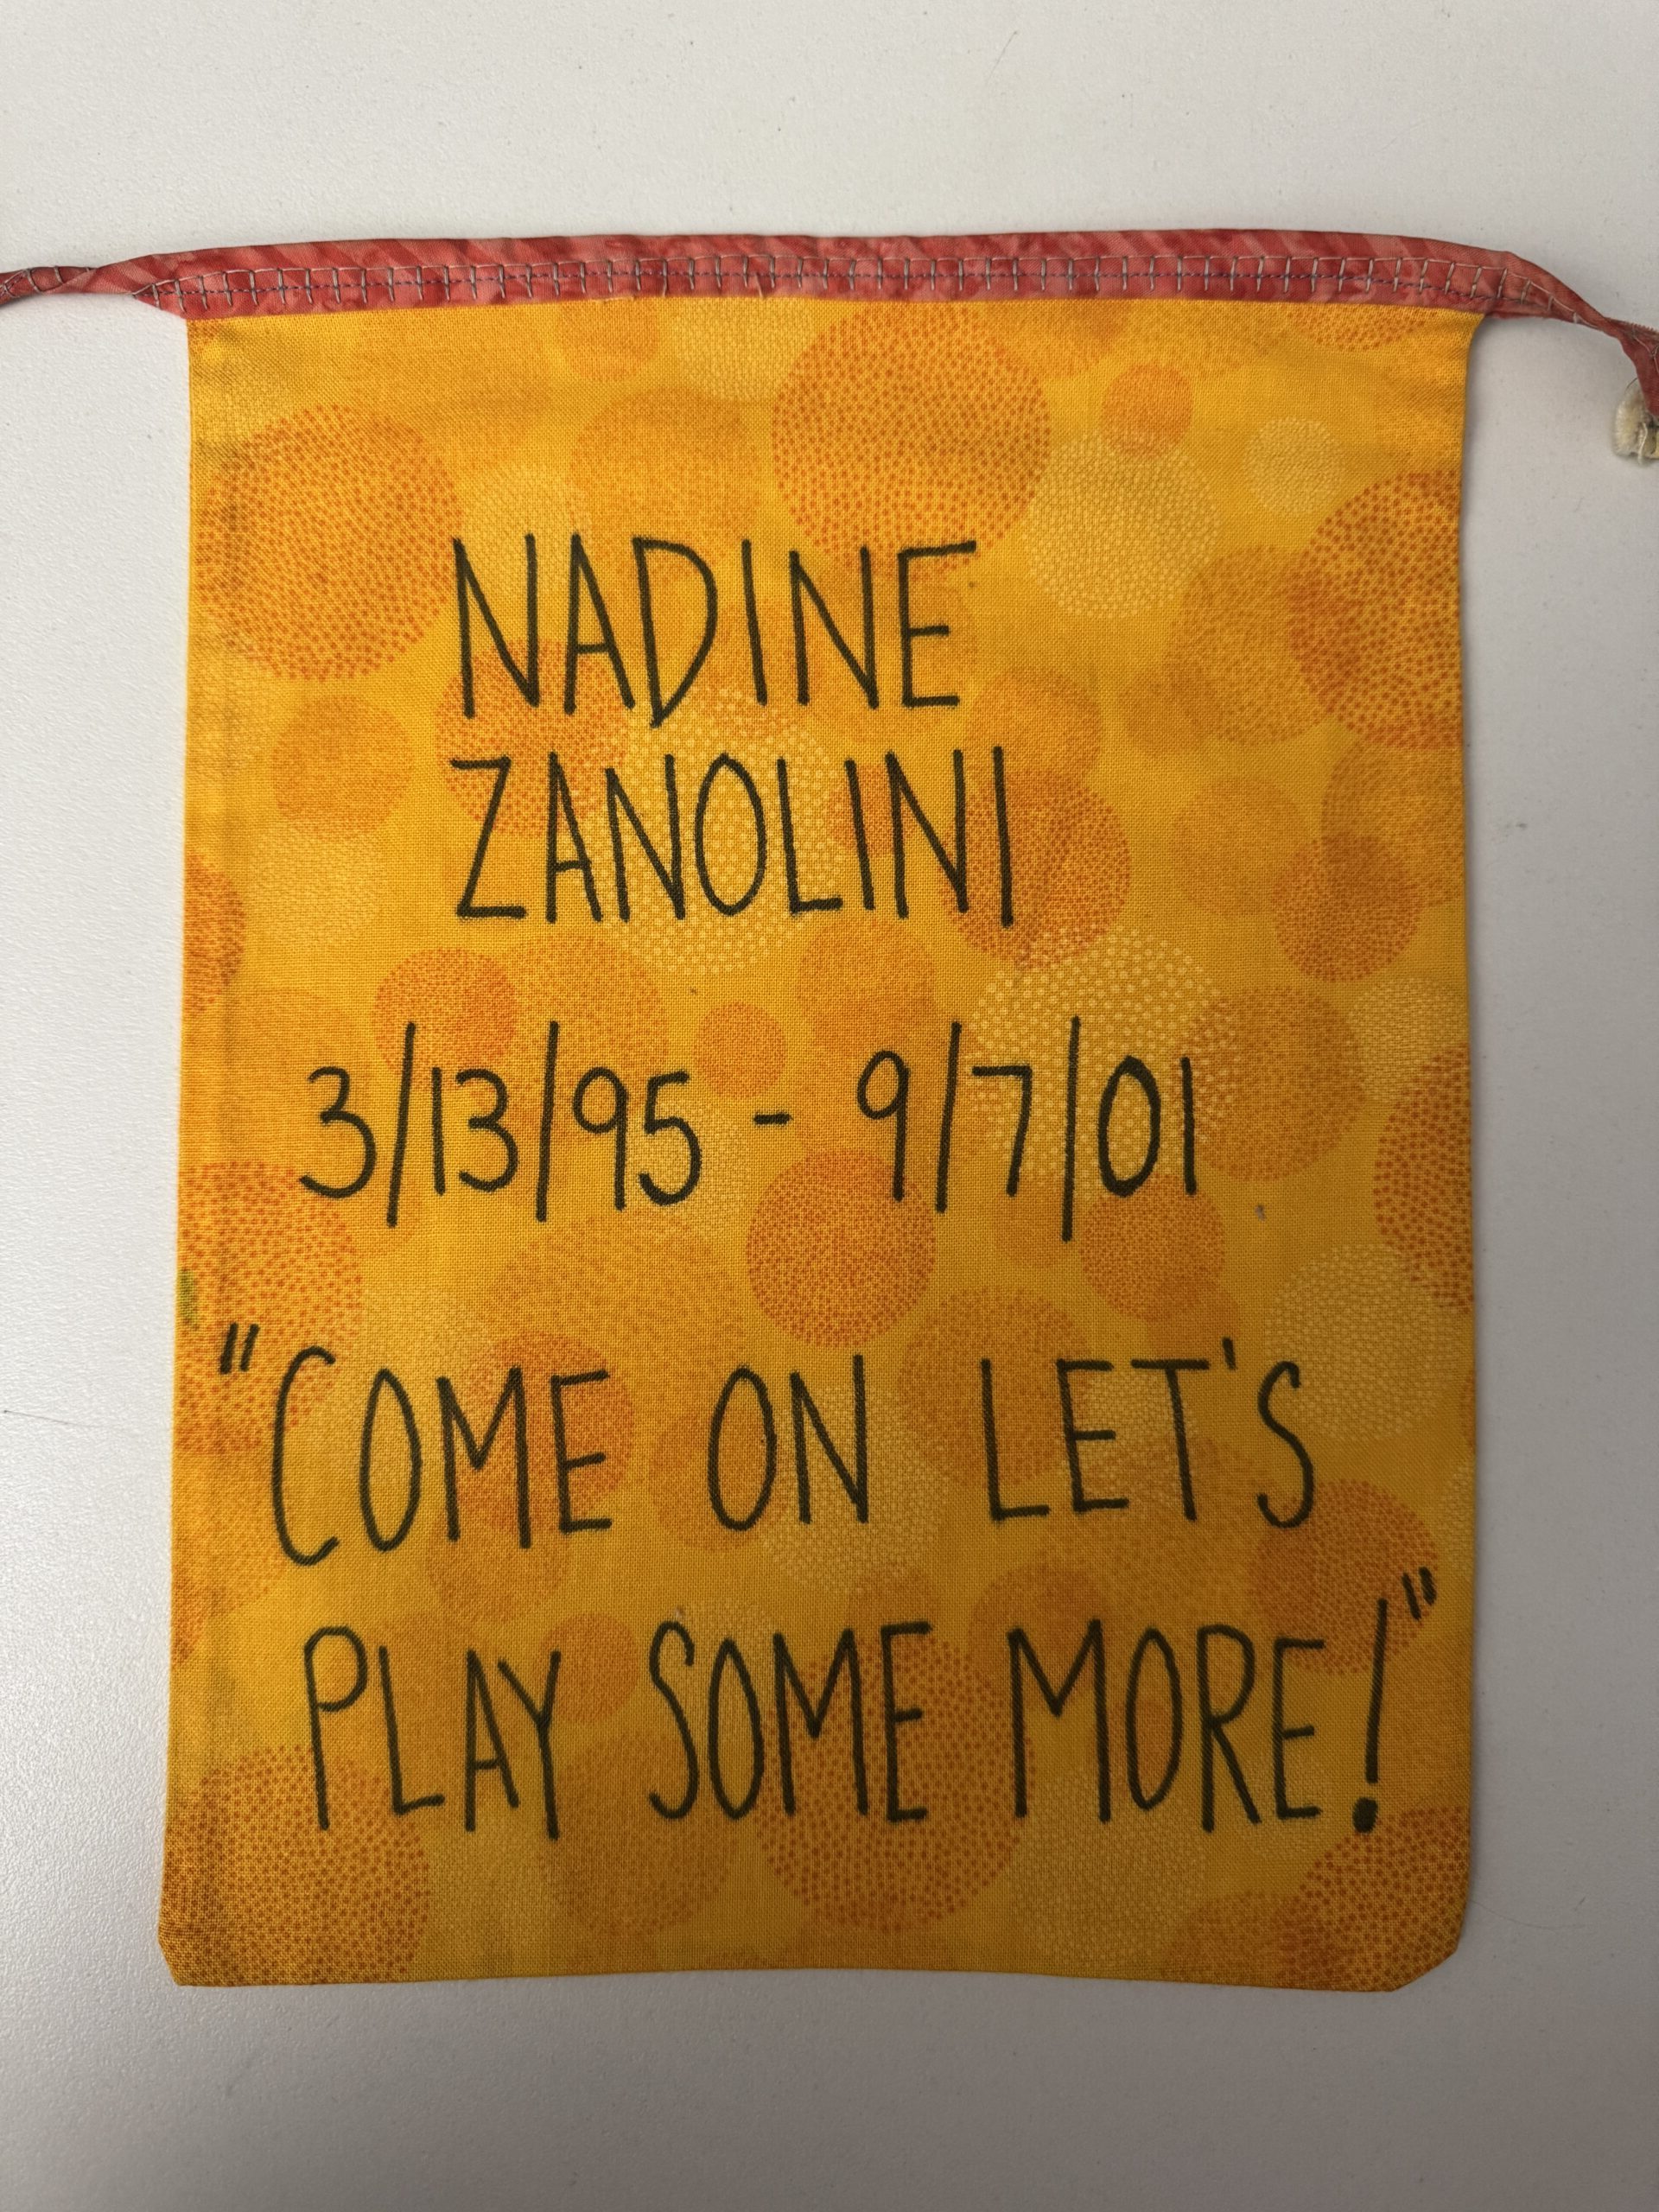 NADINE
ZANOLINI
3/13/95 - 9/7/01
"COME ON LET'S
PLAY SOME MORE!"